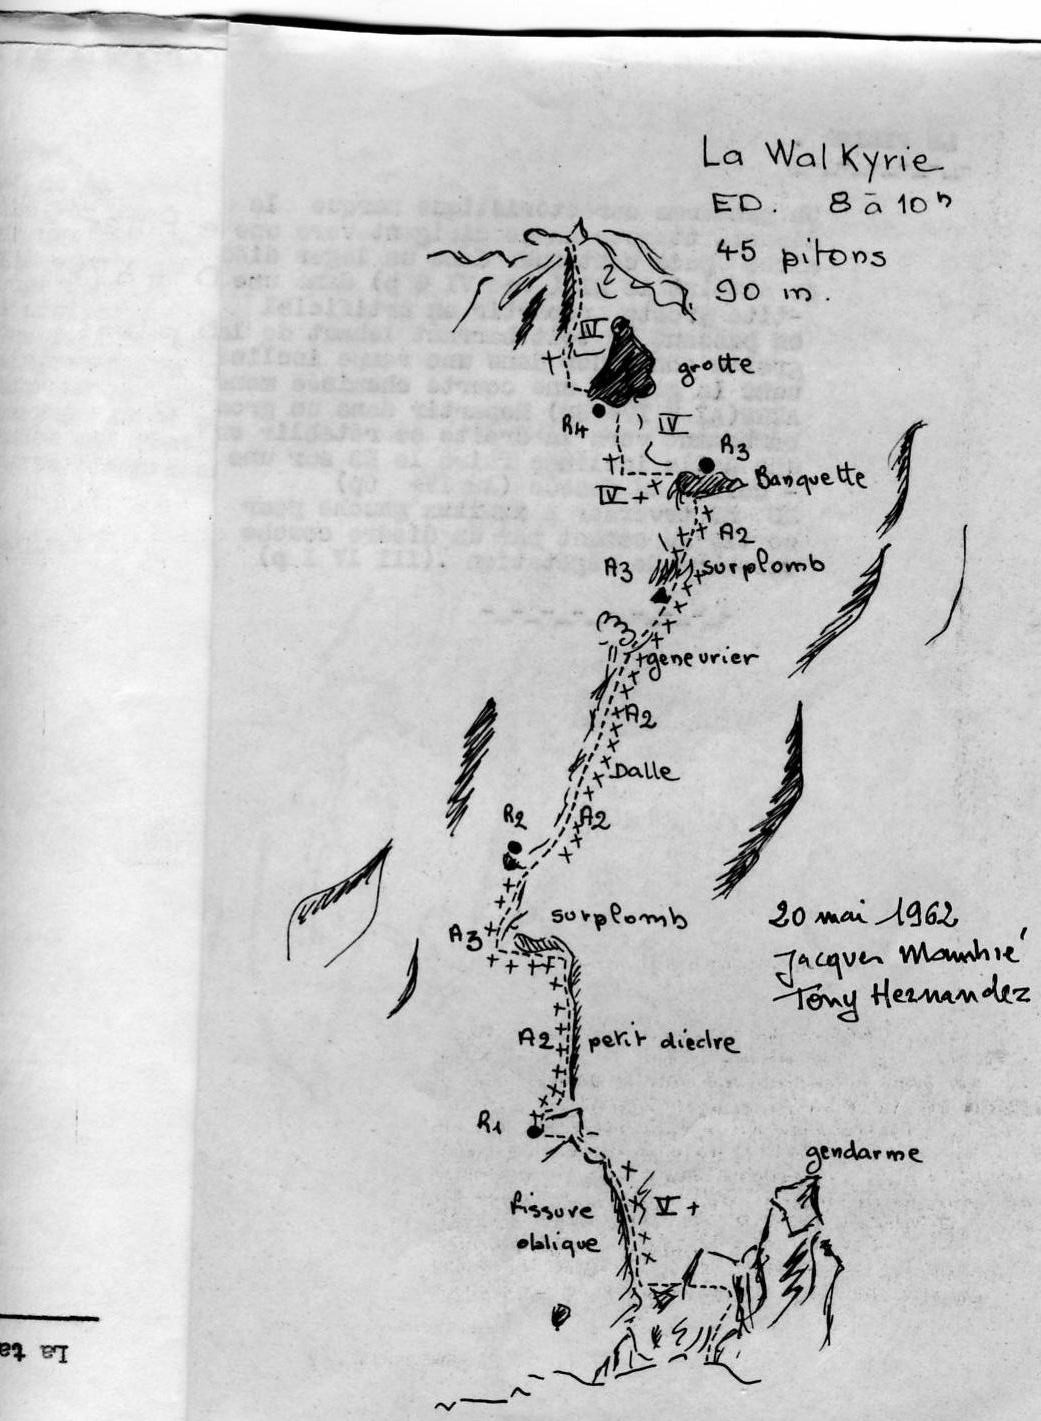 La WalKyrie
ED. 8 à 10h
45 pitons
90 m.
IV
grotte
R4
IV
R3
IV+
Banquette
A2
A3
surplomb
geneurier
A2
Dalle
A2
R2
surplomb
A3
20 mai 1962
Jacques
Tony Hernandez
A2
petit diedre
R1
gendarme
fissure
V+
oblique
La ta